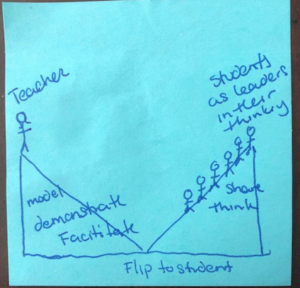 Teacher
Students
as leaders
in their
thinking
model
demonstrate
Facilitate
Share
think
Flip to student